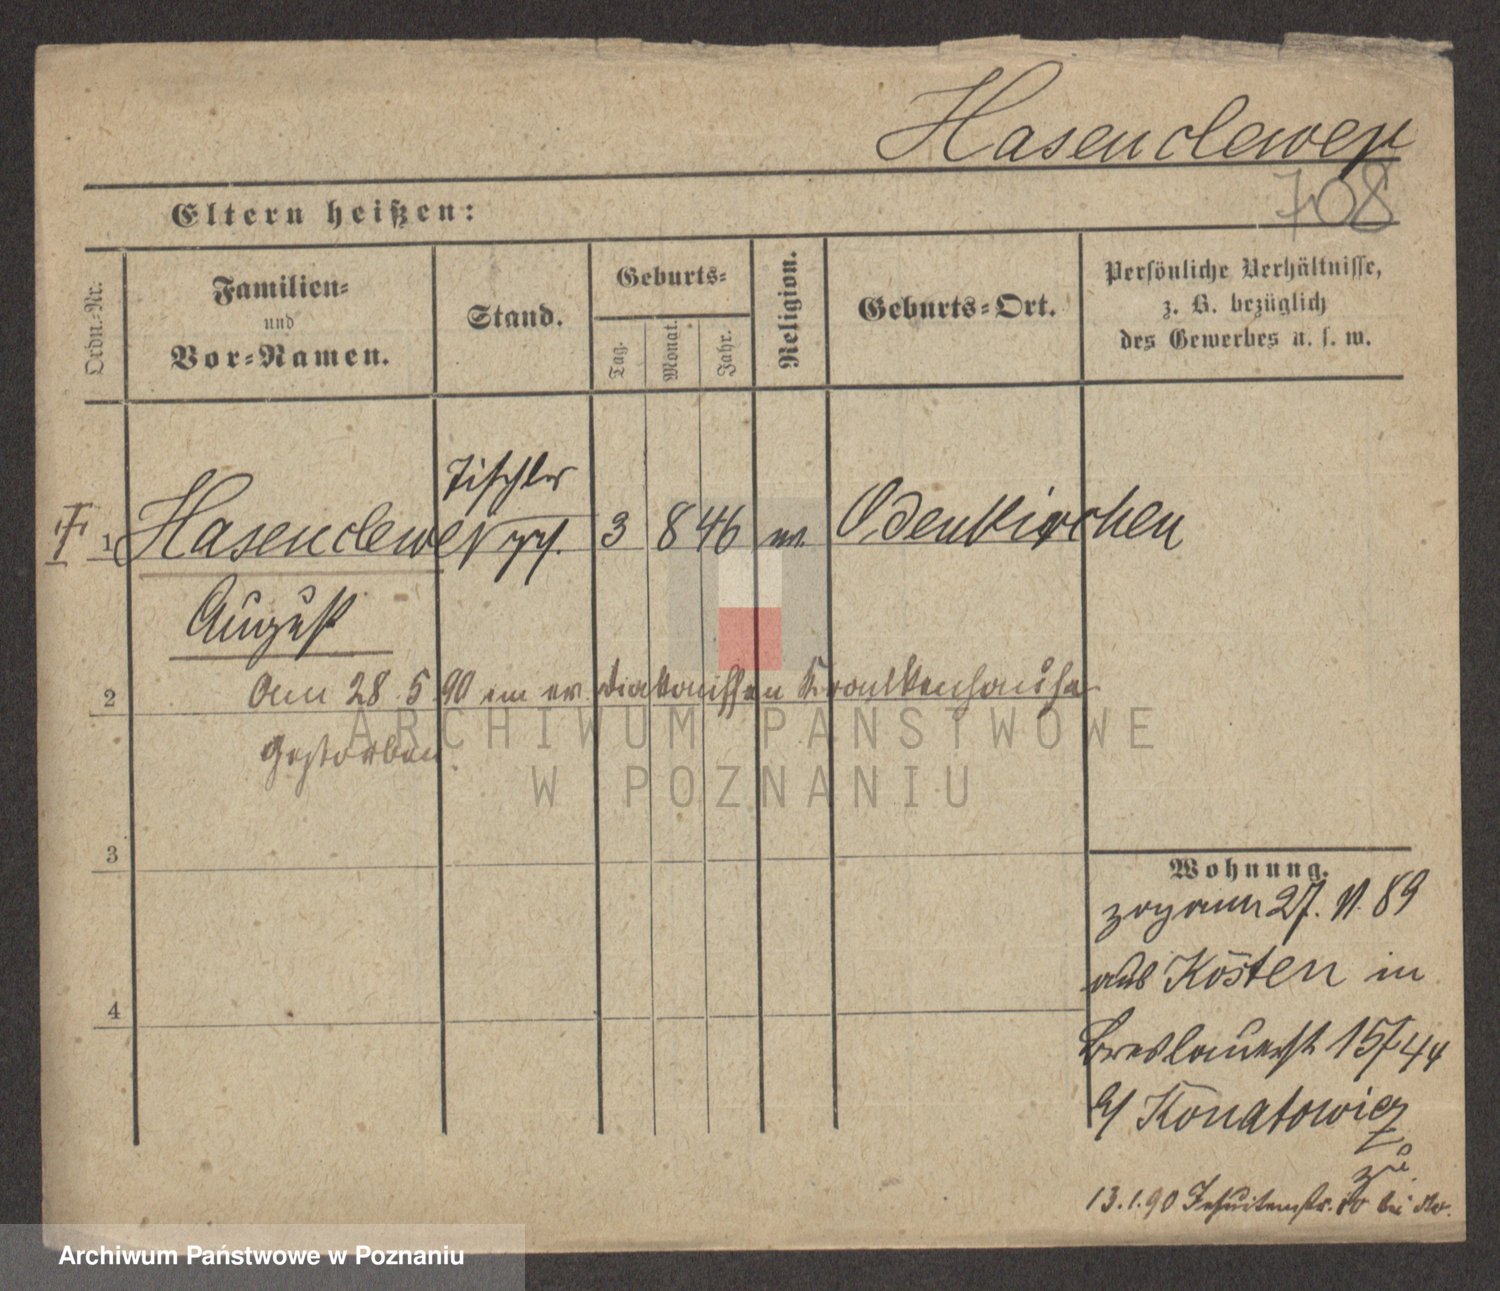 Hasenclewer
708
Eltern heißen:
Ordn.-Nr.
Familien-
und
Vor-Namen.
Stand.
Geburts-
Tag.
Monat.
Jahr.
Religion.
Geburts-Ort.
Persönliche Verhältnisse,
z. B. bezüglich
des Gewerbes u. s. w.
Tischler
1 Hasenclewer 3 8 46 ev. Odenkirchen
August
2 Am 28.5.90 im ev. Diakonissen Krankenhause
gestorben.
ARCHIWUM PAŃSTWOWE
W POZNANIU
3
Wohnung.
zog am 27. VI. 89
aus Kosten in
4
Breslauerst 15
b/ Konatowicz
zu
13.1.90 Jesuitenstr. 10 bei
Archiwum Państwowe w Poznaniu